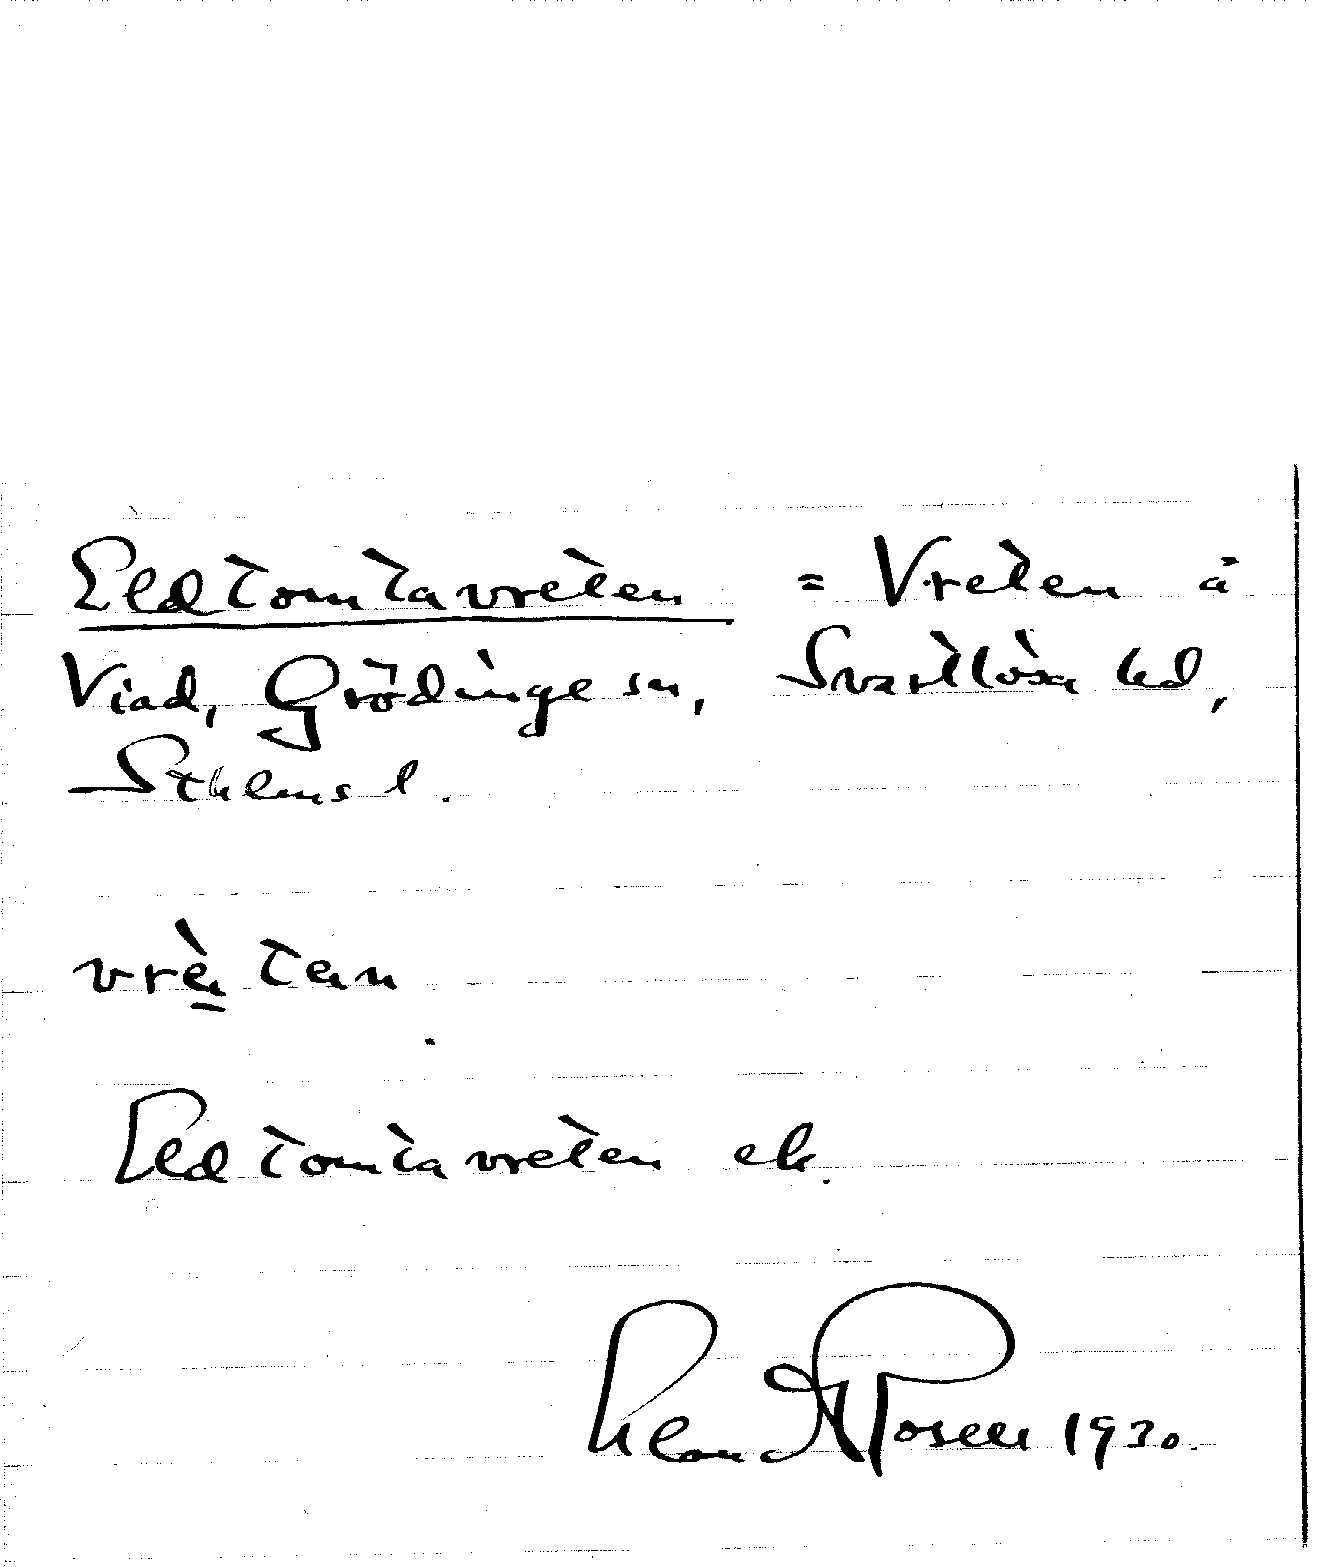 Eldtomtavreten = Vreten å
Viad, Grödinge sn, Svartlösa hd,
Sthlms l.
vrètan
Eldtomtavreten ek.
1930.